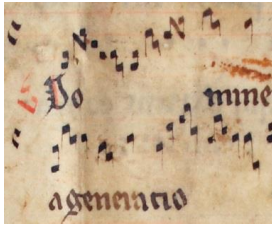 Do mine
a generatio